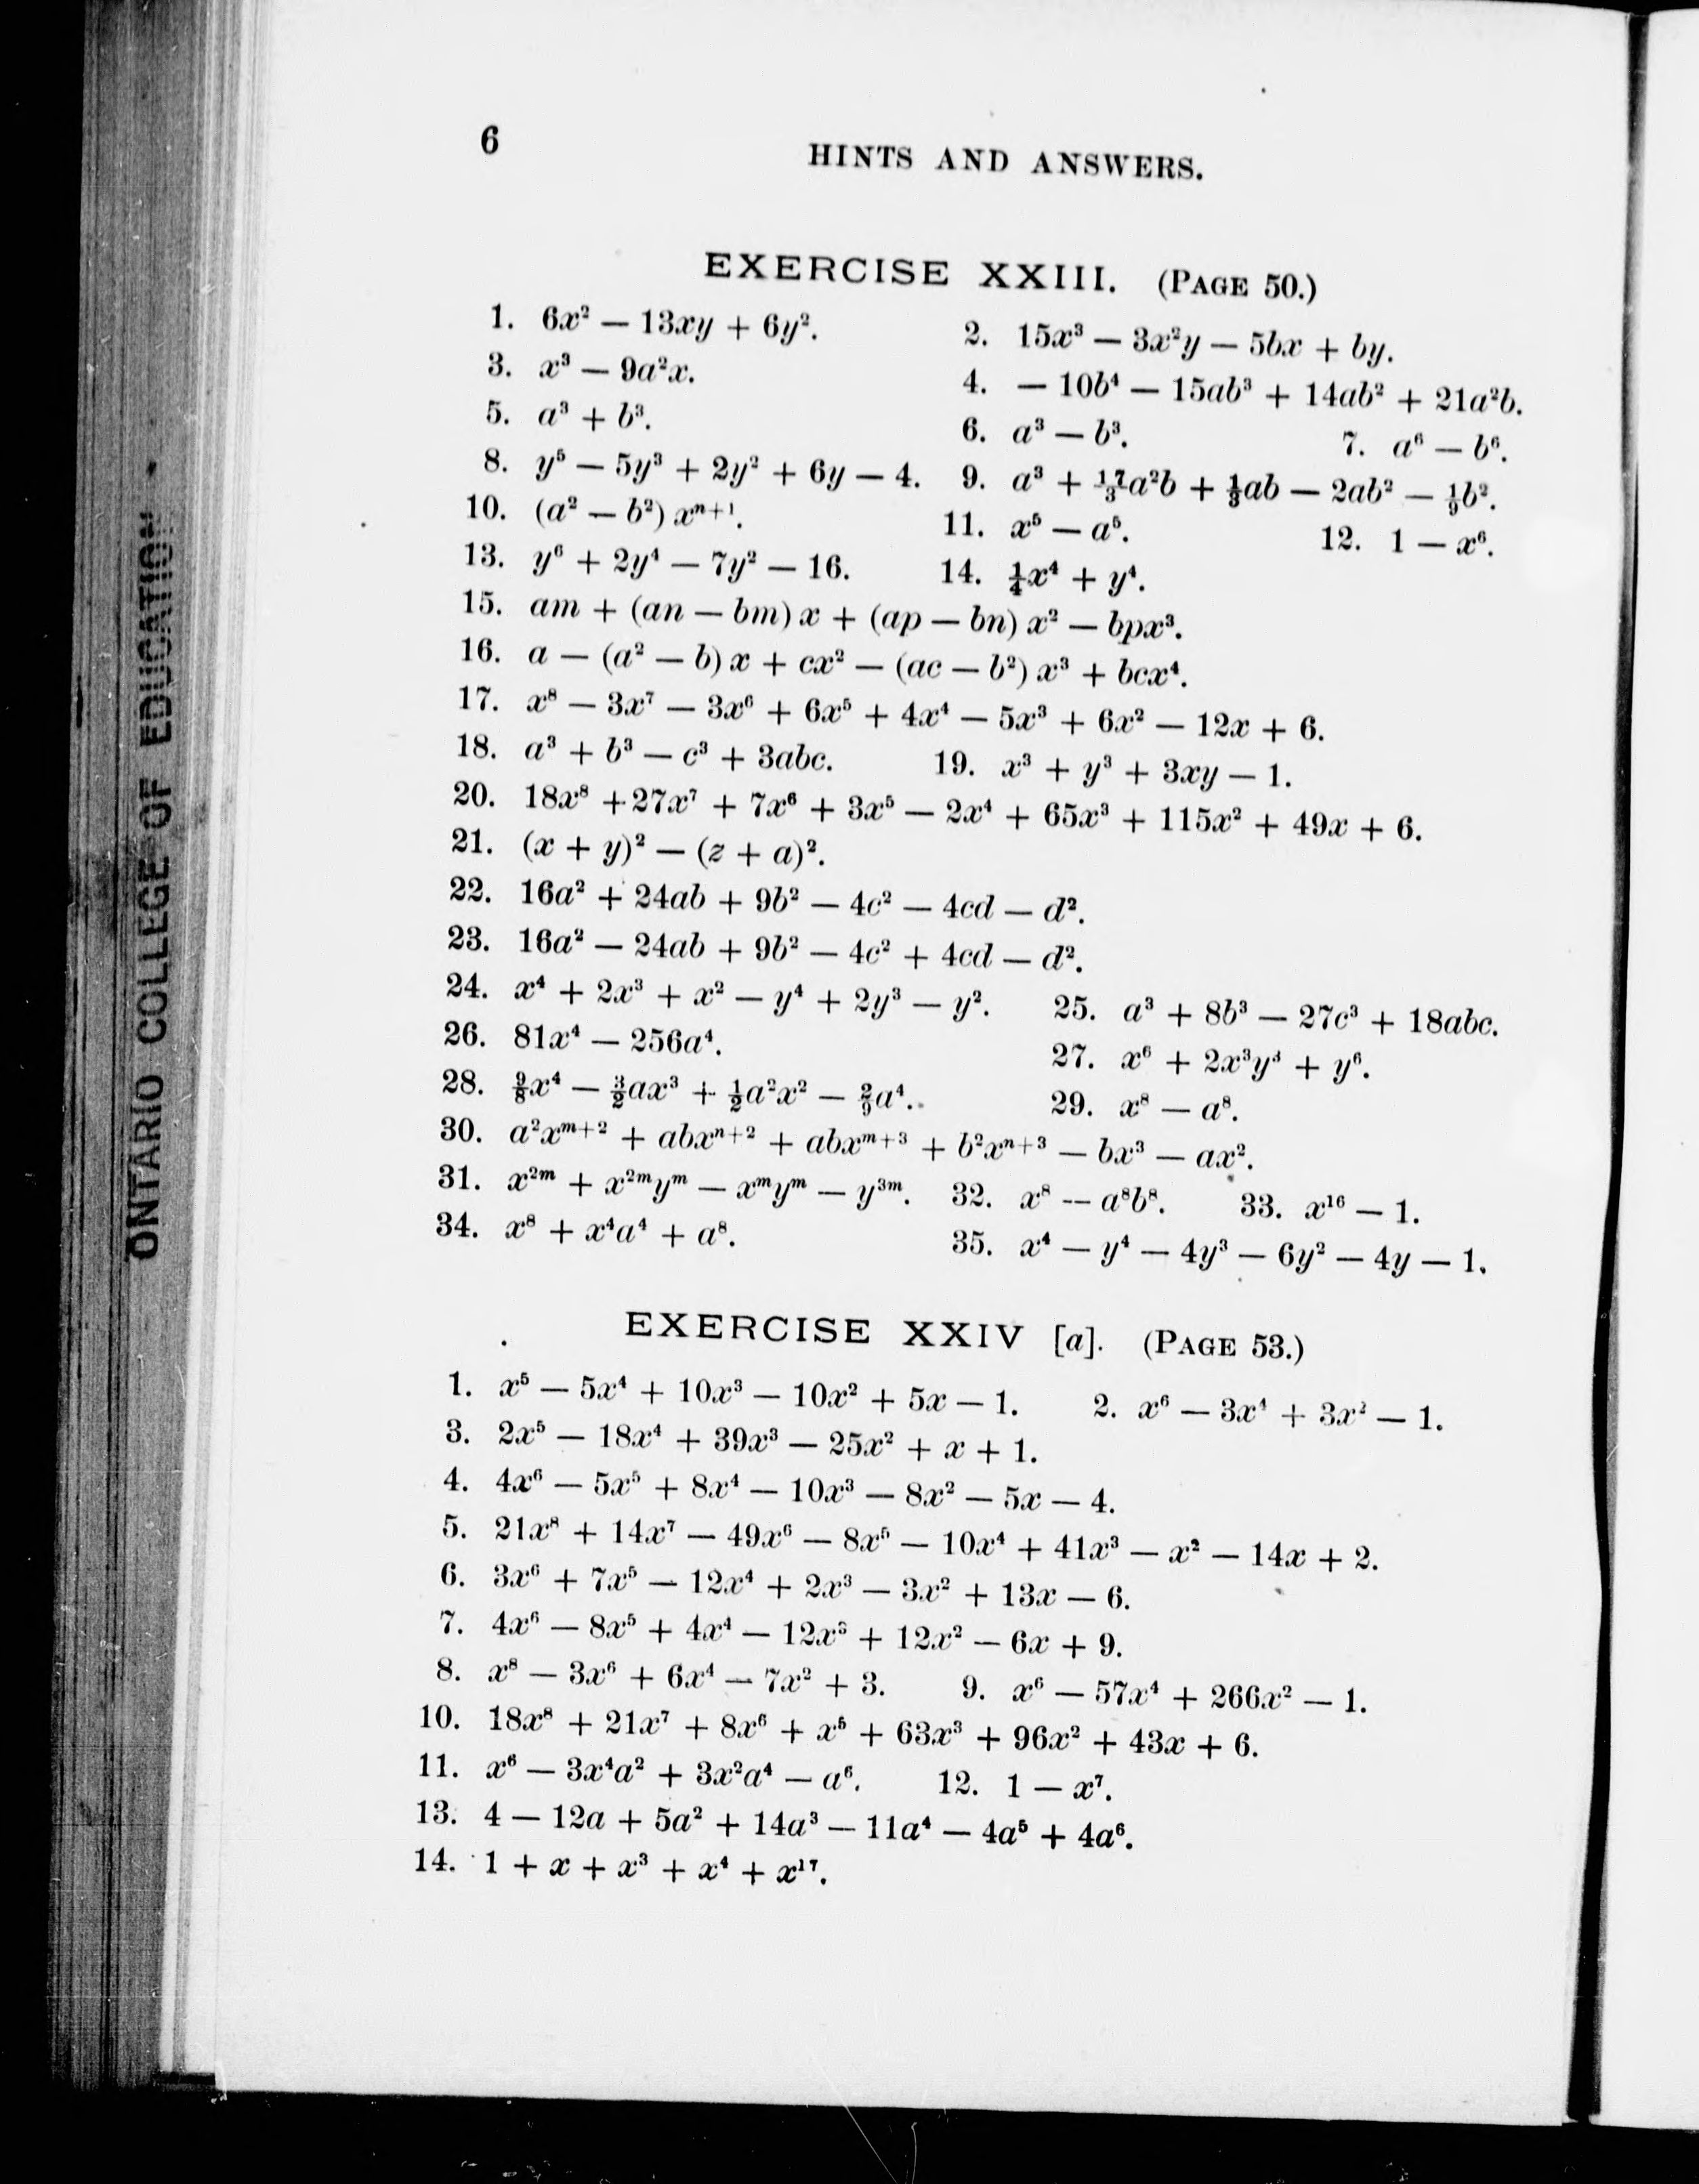 6
HINTS AND ANSWERS.
EXERCISE XXIII. (PAGE 50.)
1. 6x² — 13xy + 6y². 2. 15x³ — 3x²y — 5bx + by.
3. x³ — 9a²x. 4. — 10b⁴ — 15ab³ + 14ab² + 21a²b.
5. a³ + b³. 6. a³ — b³. 7. a⁶ — b⁶.
8. y⁵ — 5y³ + 2y² + 6y — 4. 9. a³ + 17/3a²b + 1/3ab — 2ab² — 1/9b².
10. (a² — b²) xⁿ⁺¹. 11. x⁵ — a⁵. 12. 1 — x⁶.
13. y⁶ + 2y⁴ — 7y² — 16. 14. ¼x⁴ + y⁴.
15. am + (an — bm) x + (ap — bn) x² — bpx³.
16. a — (a² — b) x + cx² — (ac — b²) x³ + bcx⁴.
17. x⁸ — 3x⁷ — 3x⁶ + 6x⁵ + 4x⁴ — 5x³ + 6x² — 12x + 6.
18. a³ + b³ — c³ + 3abc. 19. x³ + y³ + 3xy — 1.
20. 18x⁸ + 27x⁷ + 7x⁶ + 3x⁵ — 2x⁴ + 65x³ + 115x² + 49x + 6.
21. (x + y)² — (z + a)².
22. 16a² + 24ab + 9b² — 4c² — 4cd — d².
23. 16a² — 24ab + 9b² — 4c² + 4cd — d².
24. x⁴ + 2x³ + x² — y⁴ + 2y³ — y². 25. a³ + 8b³ — 27c³ + 18abc.
26. 81x⁴ — 256a⁴. 27. x⁶ + 2x³y³ + y⁶.
28. 9/8x⁴ — 3/2ax³ + ½a²x² — 2/9a⁴. 29. x⁸ — a⁸.
30. a²xᵐ⁺² + abxⁿ⁺² + abxᵐ⁺³ + b²xⁿ⁺³ — bx³ — ax².
31. x²ᵐ + x²ᵐyᵐ — xᵐyᵐ — y³ᵐ. 32. x⁸ — a⁸b⁸. 33. x¹⁶ — 1.
34. x⁸ + x⁴a⁴ + a⁸. 35. x⁴ — y⁴ — 4y³ — 6y² — 4y — 1.
EXERCISE XXIV [a]. (PAGE 53.)
1. x⁵ — 5x⁴ + 10x³ — 10x² + 5x — 1. 2. x⁶ — 3x⁴ + 3x² — 1.
3. 2x⁵ — 18x⁴ + 39x³ — 25x² + x + 1.
4. 4x⁶ — 5x⁵ + 8x⁴ — 10x³ — 8x² — 5x — 4.
5. 21x⁸ + 14x⁷ — 49x⁶ — 8x⁵ — 10x⁴ + 41x³ — x² — 14x + 2.
6. 3x⁶ + 7x⁵ — 12x⁴ + 2x³ — 3x² + 13x — 6.
7. 4x⁶ — 8x⁵ + 4x⁴ — 12x³ + 12x² — 6x + 9.
8. x⁸ — 3x⁶ + 6x⁴ — 7x² + 3. 9. x⁶ — 57x⁴ + 266x² — 1.
10. 18x⁸ + 21x⁷ + 8x⁶ + x⁵ + 63x³ + 96x² + 43x + 6.
11. x⁶ — 3x⁴a² + 3x²a⁴ — a⁶. 12. 1 — x⁷.
13. 4 — 12a + 5a² + 14a³ — 11a⁴ — 4a⁵ + 4a⁶.
14. 1 + x + x³ + x⁴ + x¹⁷.
ONTARIO COLLEGE OF EDUCATION